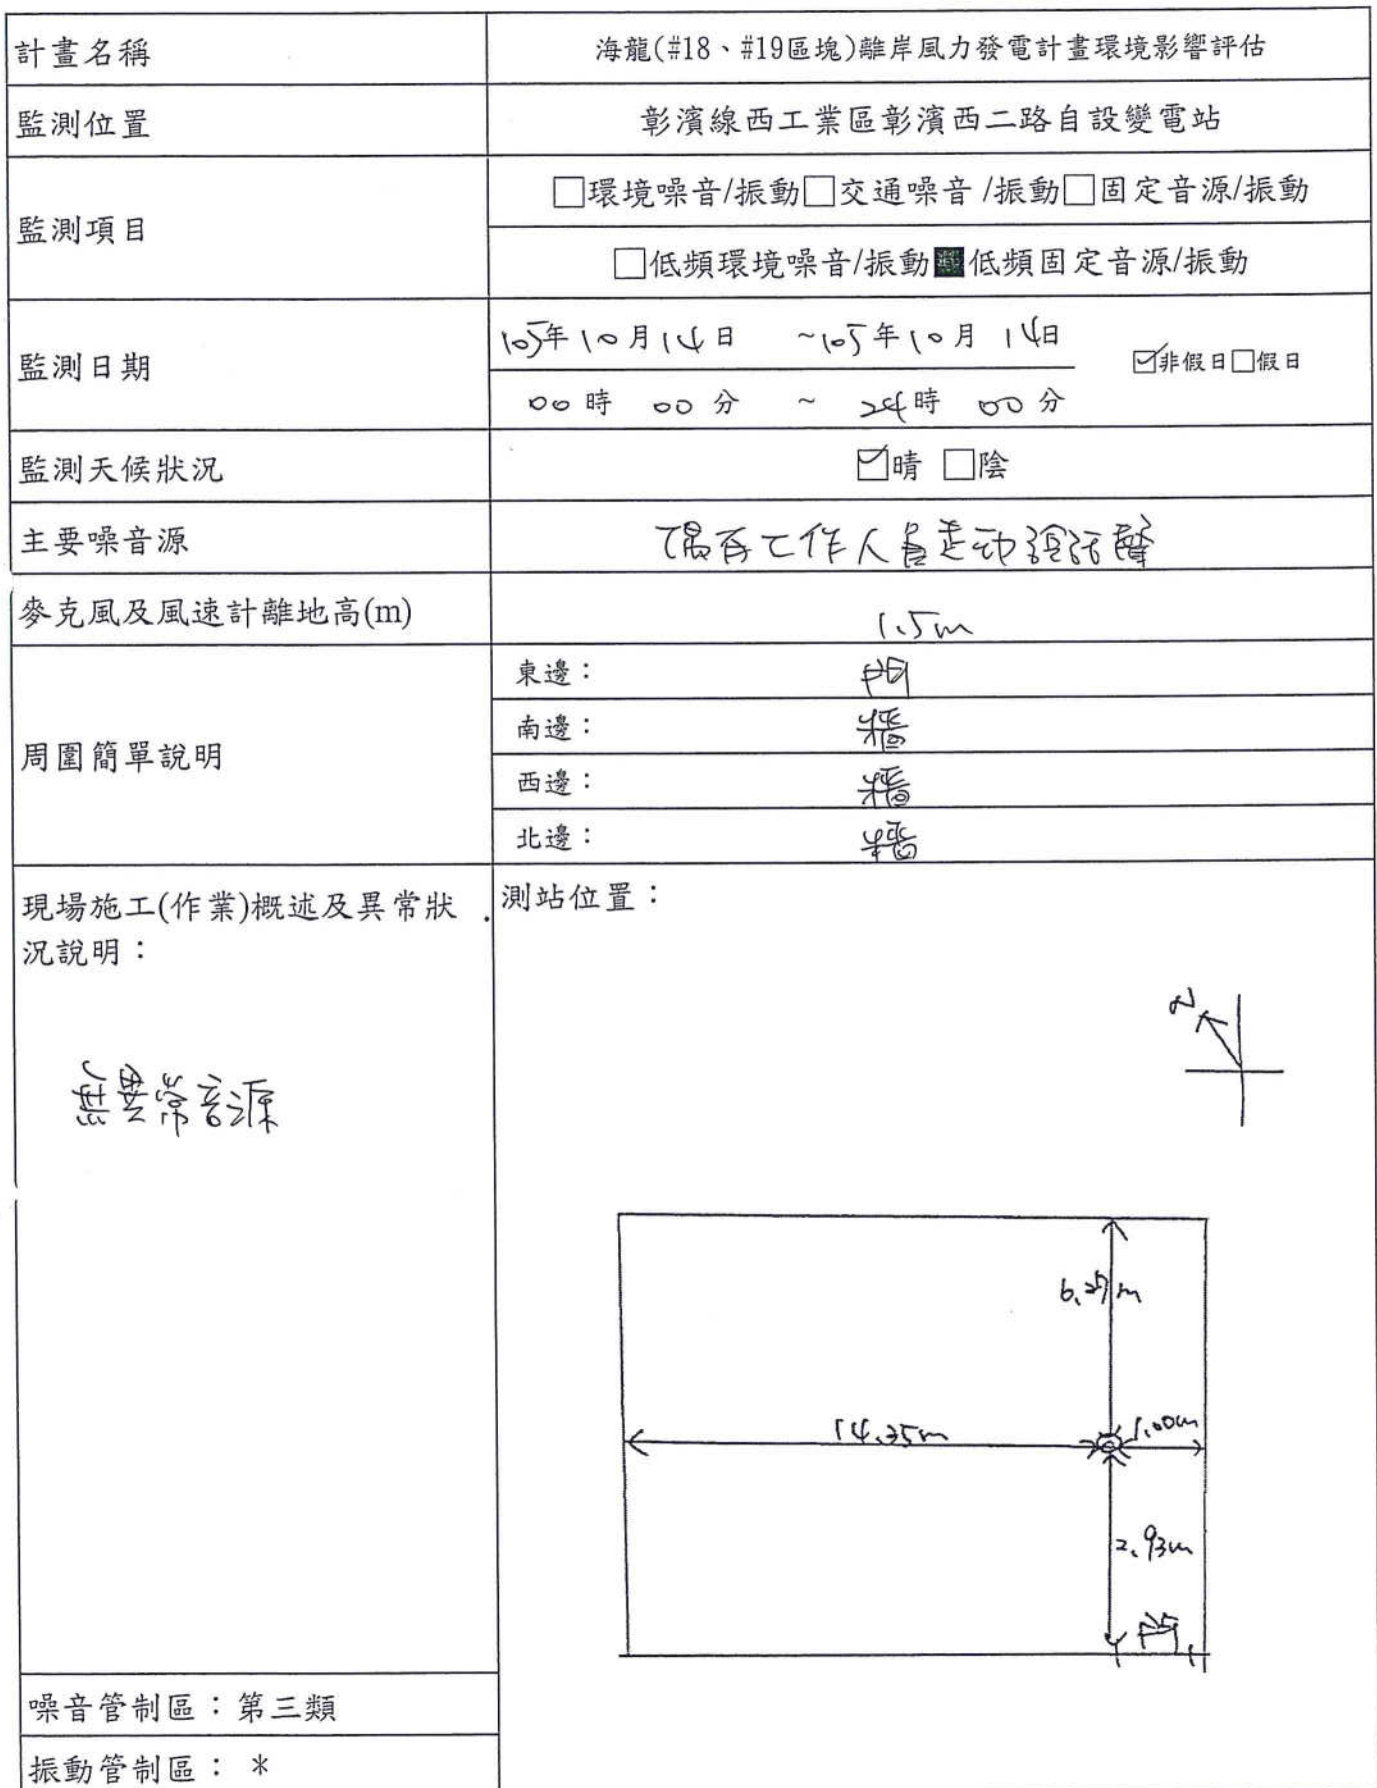 計畫名稱
海龍(#18、#19區塊)離岸風力發電計畫環境影響評估
監測位置
彰濱線西工業區彰濱西二路自設變電站
監測項目
□環境噪音/振動□交通噪音 /振動□固定音源/振動
□低頻環境噪音/振動■低頻固定音源/振動
監測日期
105年10月14日 ~105年10月 14日
☑非假日□假日
00時 00分 ~ 24時 00分
監測天候狀況
☑晴 □陰
主要噪音源
偶有工作人員走动談話聲
麥克風及風速計離地高(m)
1.5m
周圍簡單說明
東邊： 門
南邊： 牆
西邊： 牆
北邊： 牆
現場施工(作業)概述及異常狀
況說明：
無異常音源
測站位置：
N
6.27m
14.35m
1.00m
2.93m
門
噪音管制區：第三類
振動管制區： *